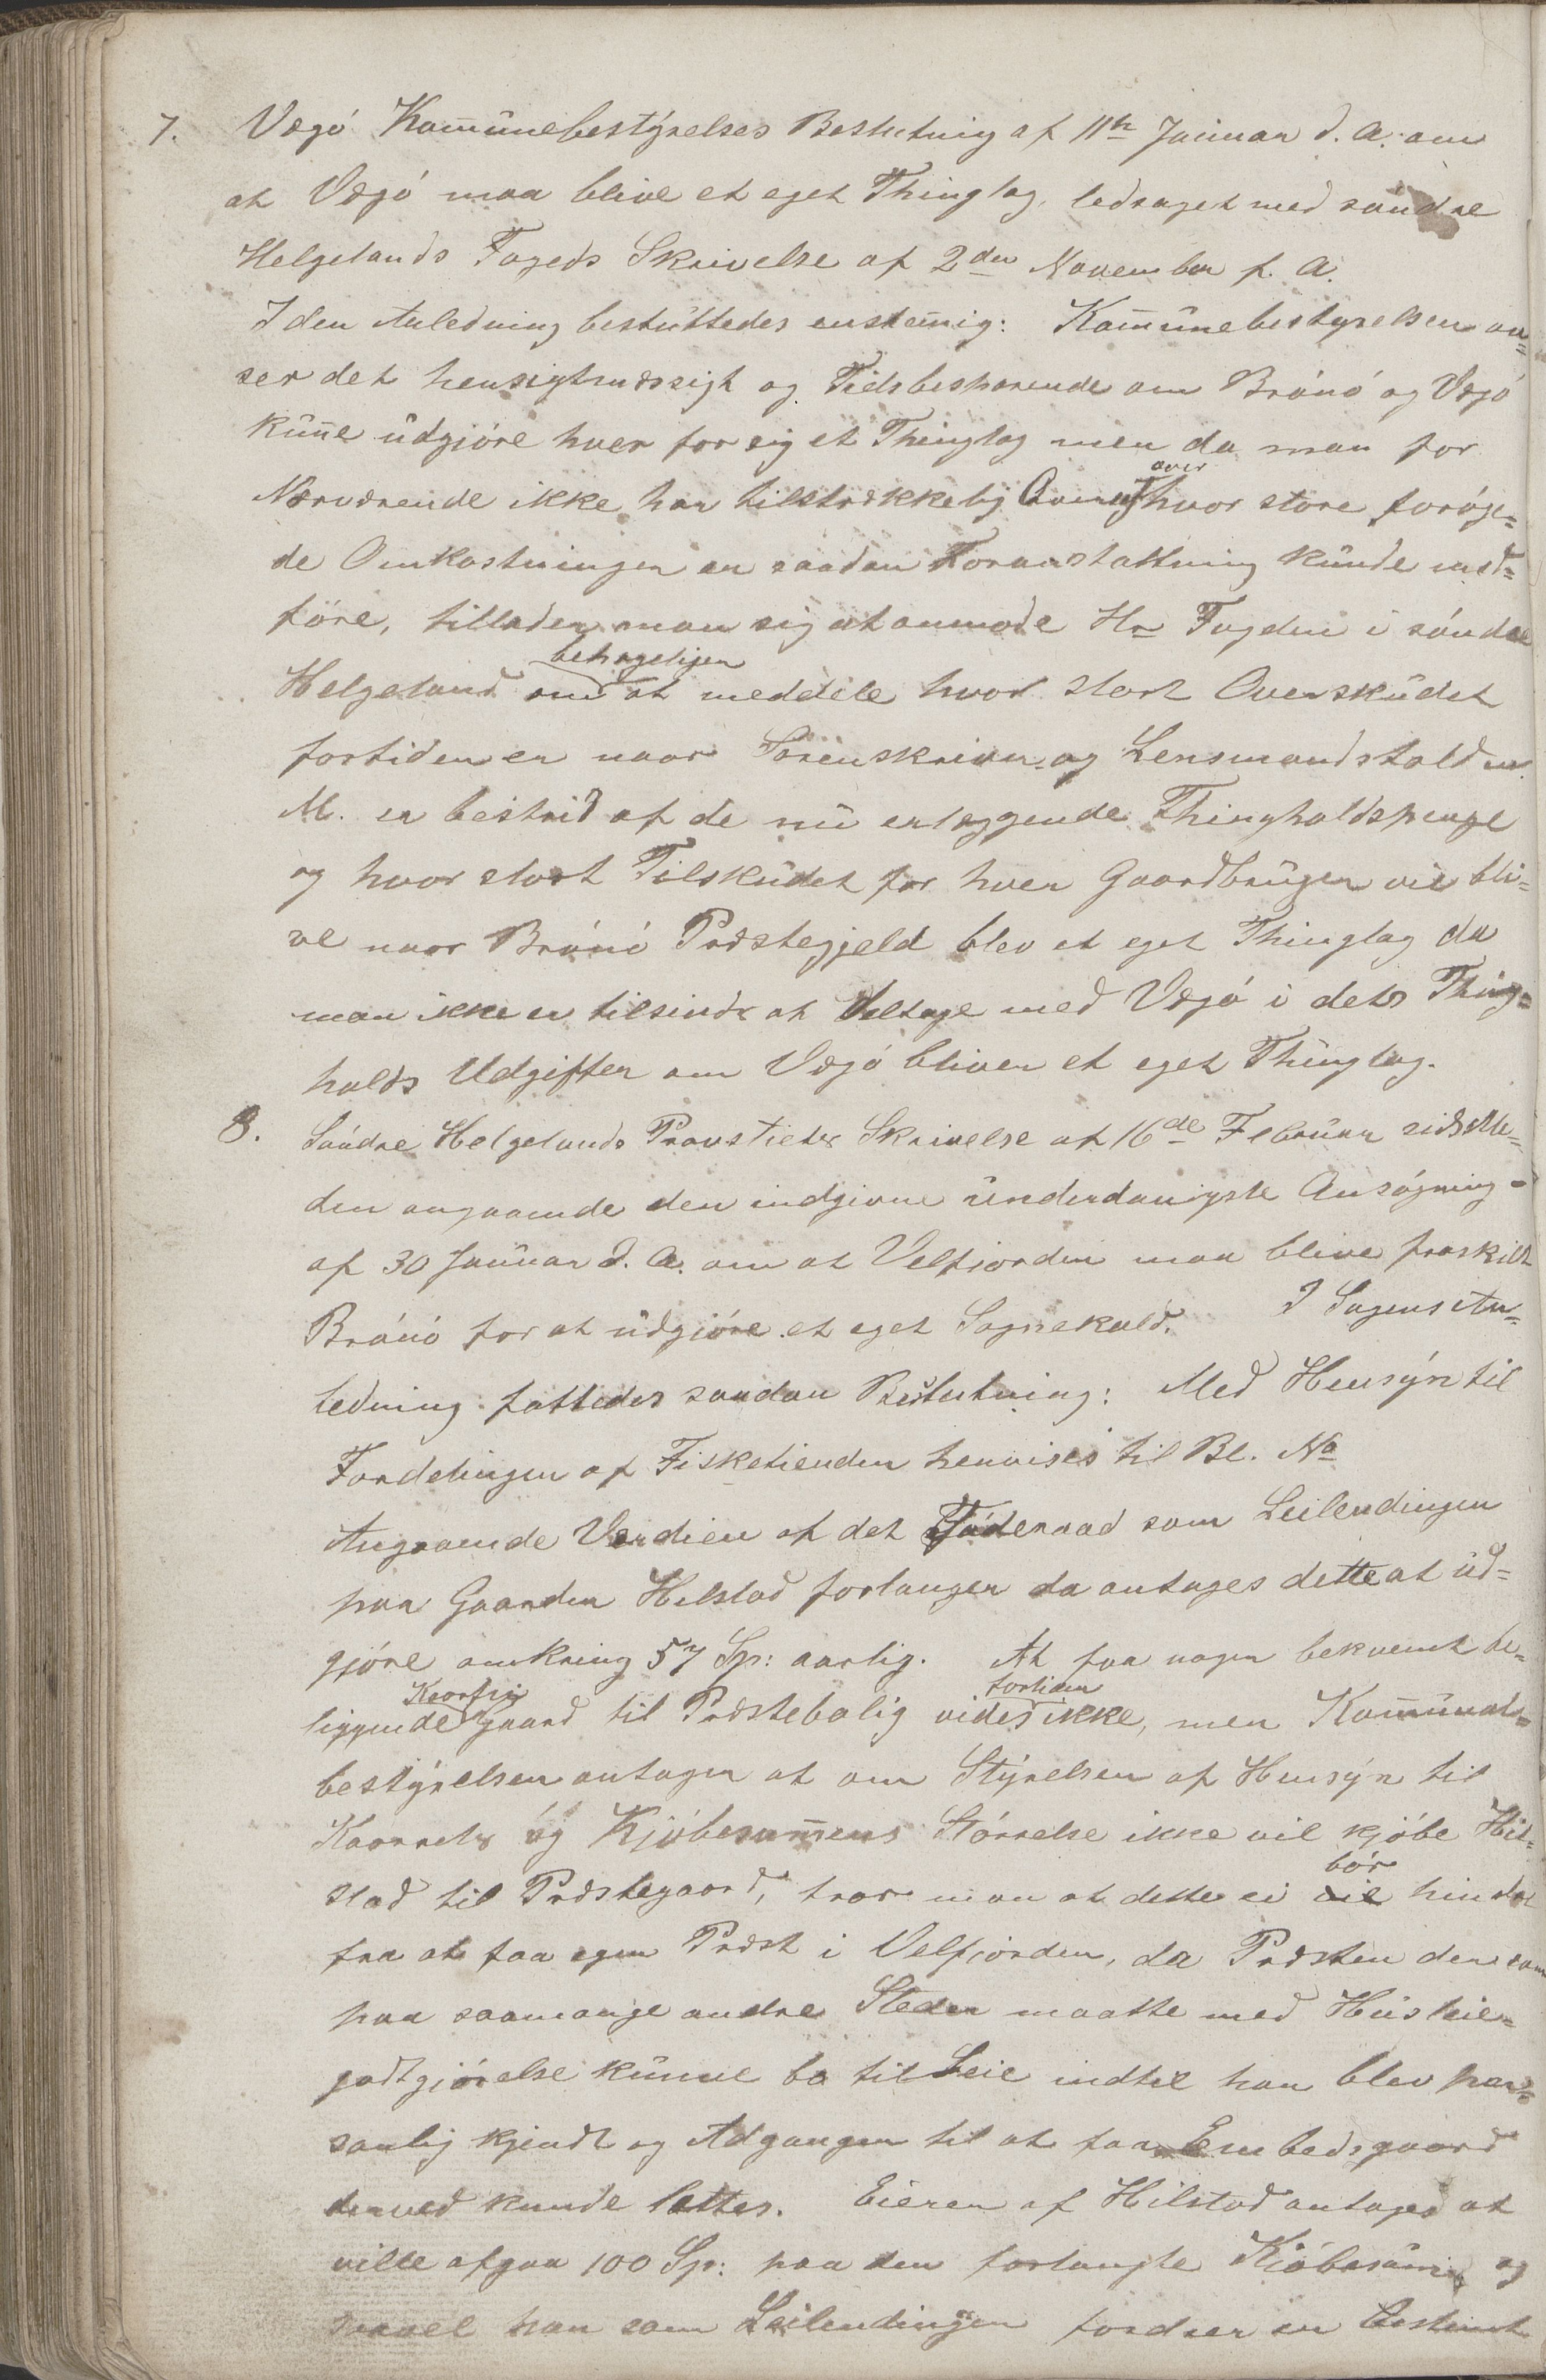 7. Vægö Kommunebestyrelses Beslutning af 11te Januar d. A. om
at Vægö maa blive et eget Thinglag, ledsaget med söndre
Helgelands Fogeds Skrivelse af 2den November f. A.
I den Anledning besluttedes enstemmig: Kommunebestyrelsen an=
ser det hensigtmæssigt og Tidsbesparende om Brönö og Vægö
kunne udgjöre hver for sig et Thinglag men da man for
Nærværende ikke har tilstrækkelig over hvor store foröge=
de Omkostninger en saadan Foranstaltning kunde med=
före, tillader man sig at anmode Hr Fogden i söndre
Helgeland om behageligen at meddele hvor stort Overskudet
fortiden er naar Sorenskriver og Lensmandshold m.
M. er bestridt af de nu erlæggende Thingholdspenge
og hvor stort Tilskudet for hver Gaardbruger vil bli=
ve naar Brönö Præstegjeld blev et eget Thinglag da
man ikke er tilsinds at deltage med Vægö i dets Thing=
holds Udgifter om Vægö bliver et eget Thinglag.
8. Söndre Helgelands Provsties Skrivelse af 16de Februar sidstle=
den angaaende den indgivne underdanigste Ansögning
af 30 Januar d. A. om at Velfjorden maa blive fraskilt
Brönö for at udgjöre et eget Sognekald. I Sagens An=
ledning fattedes saadan Beslutning: Med Hensyn til
Fordelingen af Fisketienden henvises til Bl. No
Angaaende Verdien af det Föderaad som Leilendingen
paa Gaarden Hilstad forlanger da antages dette at ud=
gjöre omkring 57 Sp: aarlig. At faa nogen bekvemt be=
liggende Kaarfri gaard til Præstebolig vides fortiden ikke, men Kommunal=
bestyrelsen antager at om Styrelsen af Hensyn til
Kaarets og Kjöbesummens Störrelse ikke vil kjöbe Hil=
stad til Præstegaard, tror man at dette ei bör hindre
fra at faa egen Præst i Velfjorden, da Præsten der som
paa saamange andre Steder maatte med Husleie=
godtgjörelse kunne bo til Leie indtil han blev per=
sonlig kjendt og Adgangen til at faa Embedsgaard
derved kunde lettes. Eieren af Hilstad antages at
ville afgaa 100 Sp: paa den forlangte Kjöbesum og
saavel han som Leilendingen fordrer en bestemt